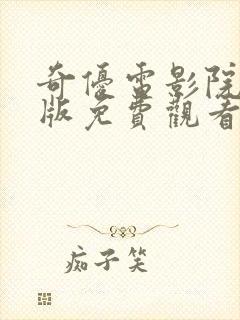 奇優電影院
版免費觀看
痴子笑